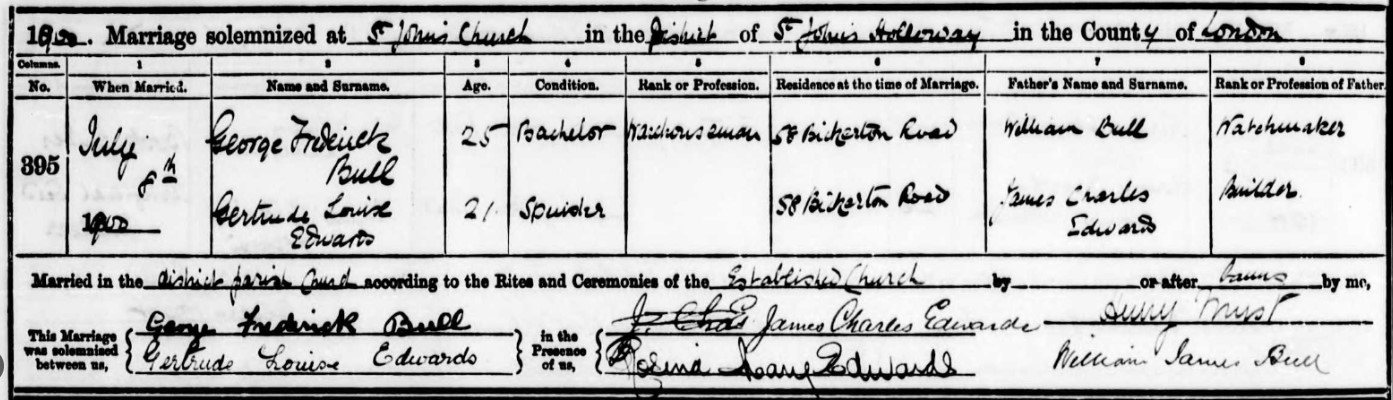 1900. Marriage solemnized at St John's Church in the District of St John's Holloway in the County of London
Columns. 1 2 3 4 5 6 7 8
No. When Married. Name and Surname. Age. Condition. Rank or Profession. Residence at the time of Marriage. Father's Name and Surname. Rank or Profession of Father.
395 July 8th 1900 George Frederick Bull 25 Bachelor Warehouseman 58 Bickerton Road William Bull Watchmaker
Gertrude Louise Edwards 21 Spinster 58 Bickerton Road James Charles Edwards Builder.
Married in the District parish Church according to the Rites and Ceremonies of the Established Church by or after Banns by me,
This Marriage was solemnized between us, George Frederick Bull in the Presence of us, J. Chas James Charles Edwards Henry
Gertrude Louise Edwards Rosina Mary Edwards William James Bull